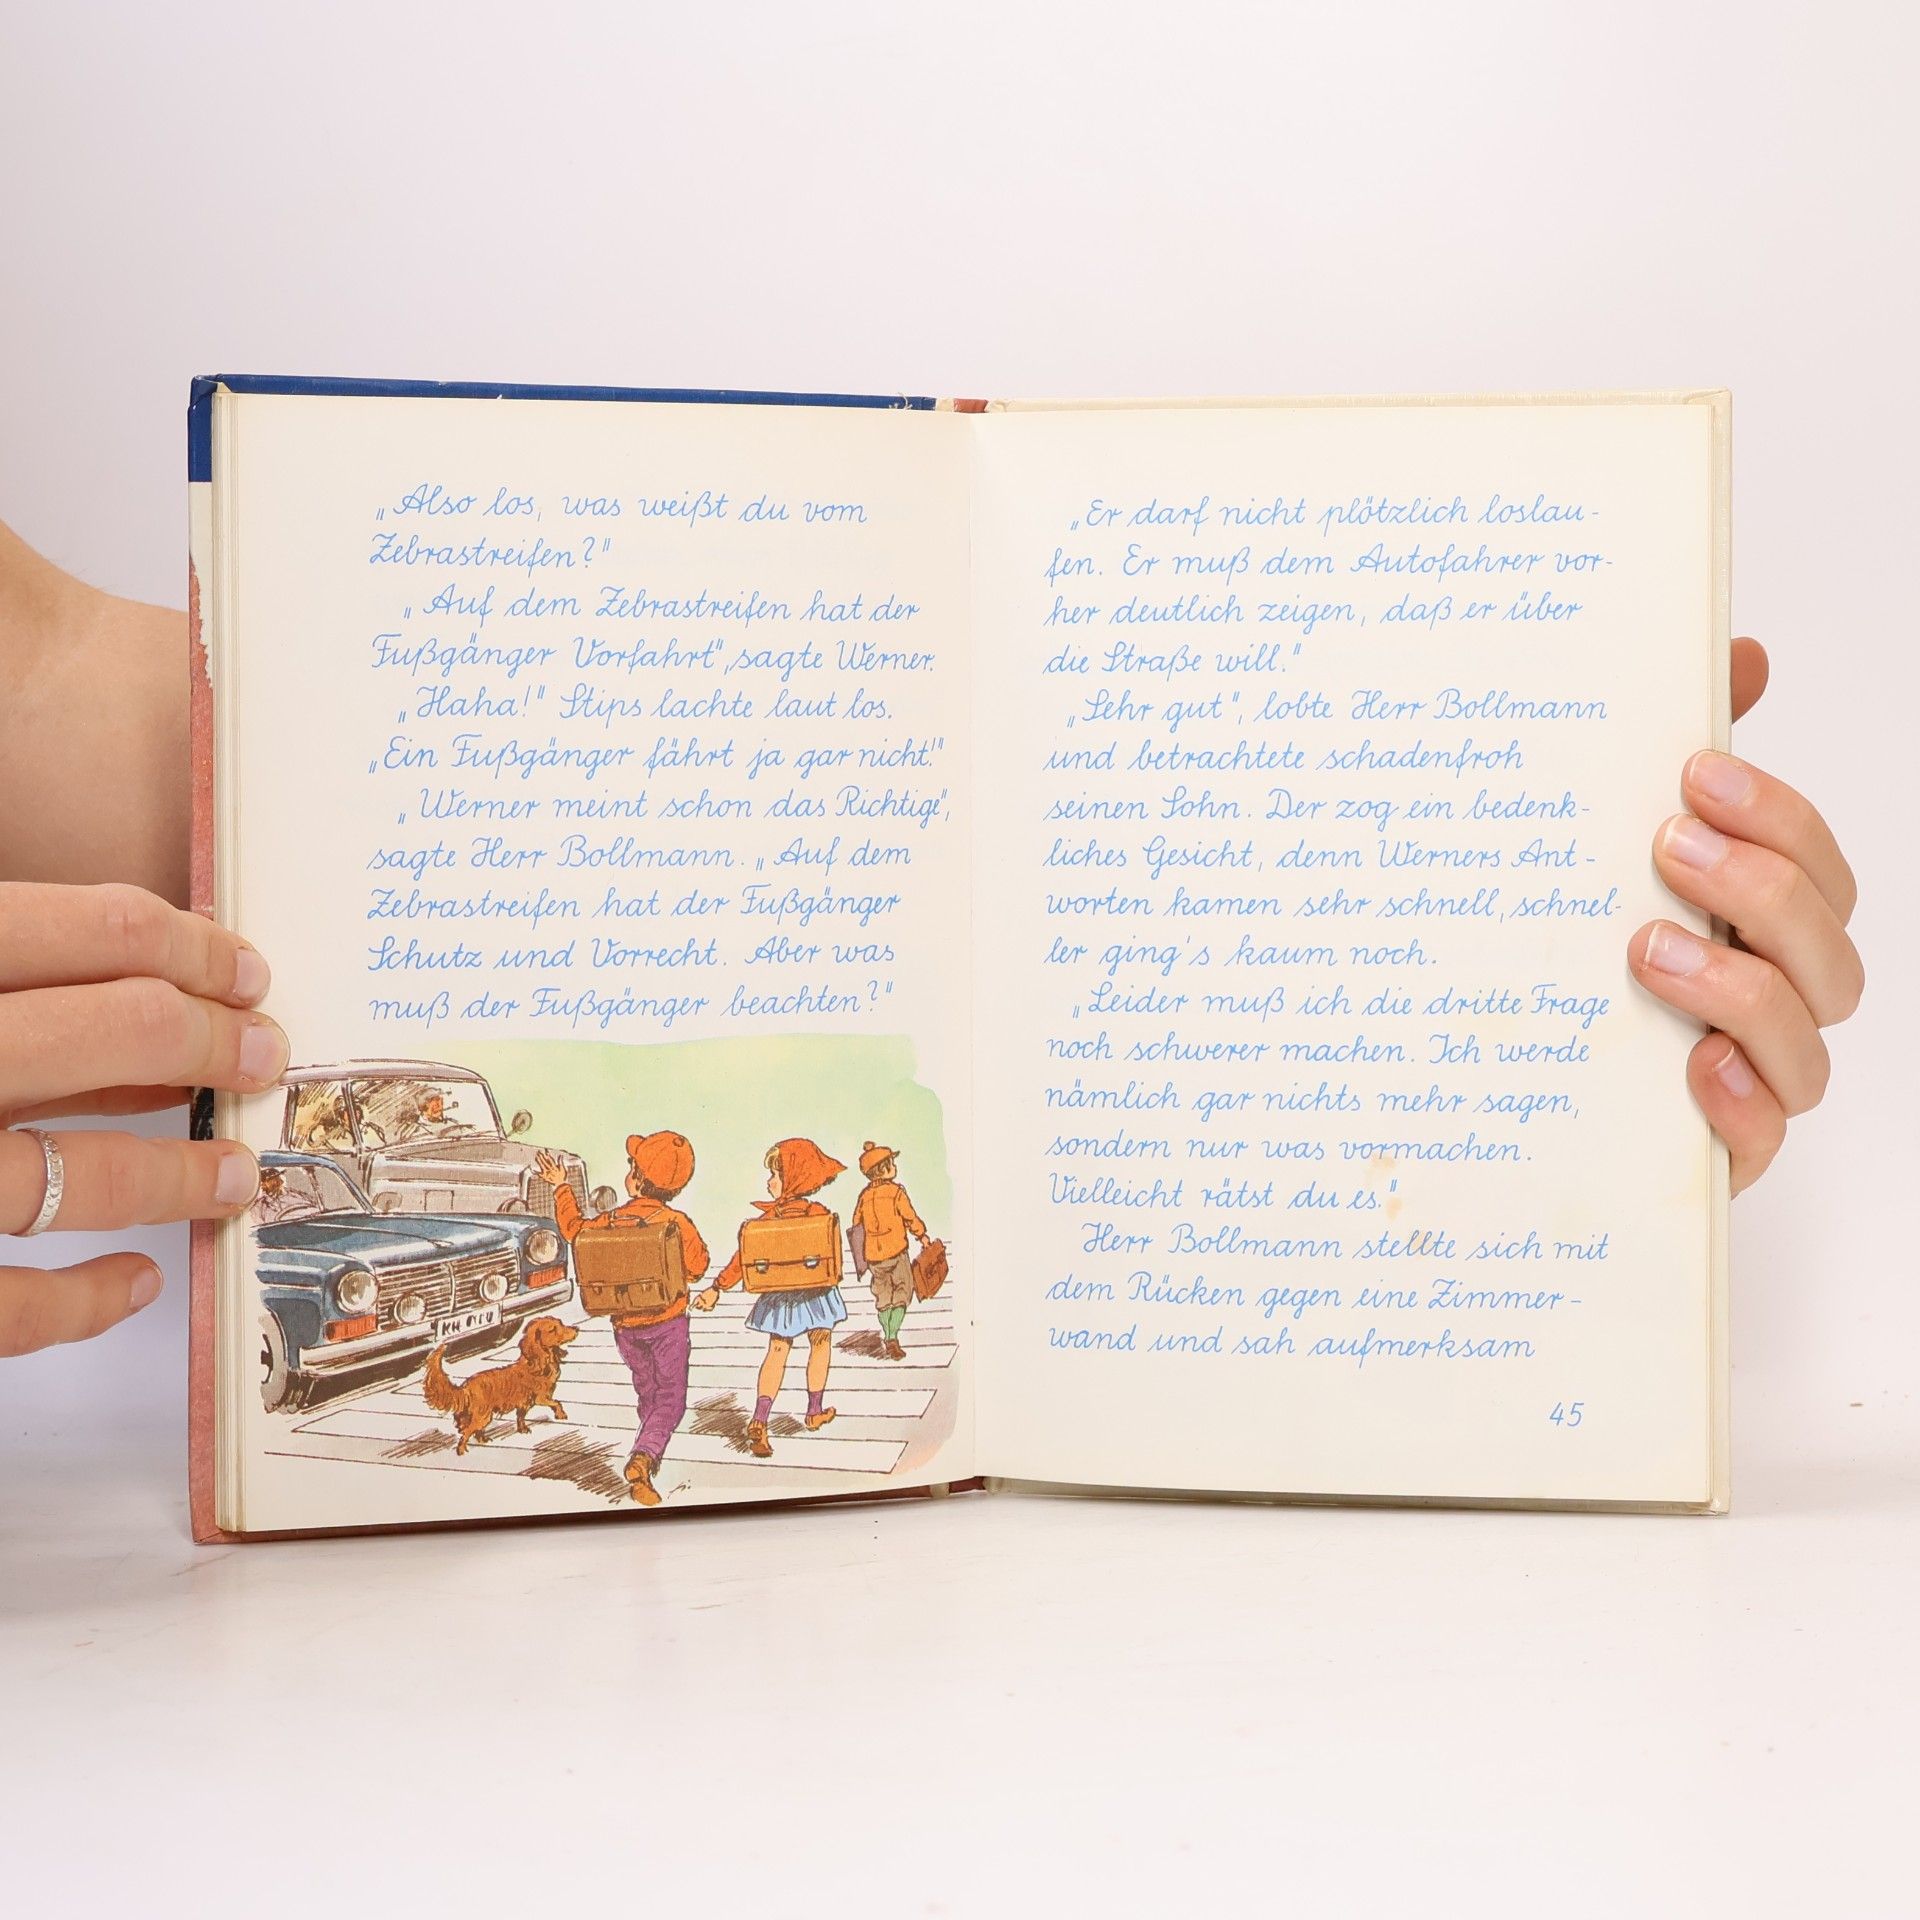 „Also los, was weißt du vom
Zebrastreifen?"
„Auf dem Zebrastreifen hat der
Fußgänger Vorfahrt", sagte Werner.
„Haha!" Stips lachte laut los.
„Ein Fußgänger fährt ja gar nicht!"
„Werner meint schon das Richtige",
sagte Herr Bollmann. „Auf dem
Zebrastreifen hat der Fußgänger
Schutz und Vorrecht. Aber was
muß der Fußgänger beachten?"
„Er darf nicht plötzlich loslau-
fen. Er muß dem Autofahrer vor-
her deutlich zeigen, daß er über
die Straße will."
„Sehr gut", lobte Herr Bollmann
und betrachtete schadenfroh
seinen Sohn. Der zog ein bedenk-
liches Gesicht, denn Werners Ant-
worten kamen sehr schnell, schnel-
ler ging's kaum noch.
„Leider muß ich die dritte Frage
noch schwerer machen. Ich werde
nämlich gar nichts mehr sagen,
sondern nur was vormachen.
Vielleicht rätst du es."
Herr Bollmann stellte sich mit
dem Rücken gegen eine Zimmer-
wand und sah aufmerksam
45